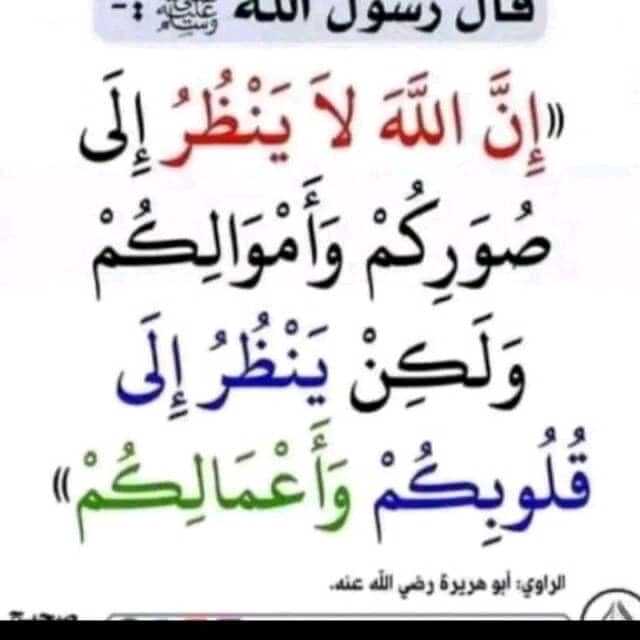 قال رسول الله ﷺ :-
«إِنَّ اللَّهَ لاَ يَنْظُرُ إِلَى
صُوَرِكُمْ وَأَمْوَالِكُمْ
وَلَكِنْ يَنْظُرُ إِلَى
قُلُوبِكُمْ وَأَعْمَالِكُمْ»
الراوي: أبو هريرة رضي الله عنه.